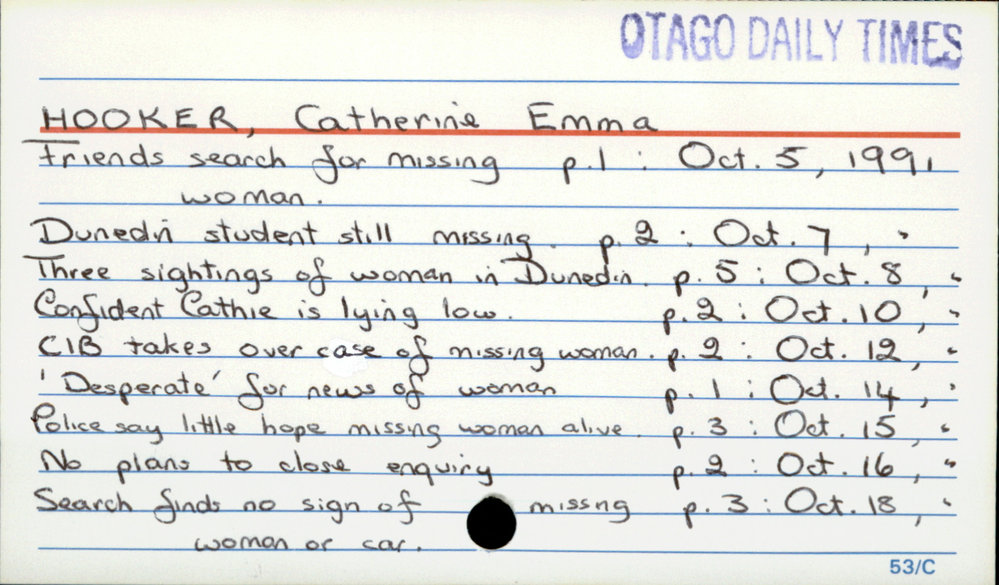 OTAGO DAILY TIMES
HOOKER, Catherine Emma
Friends search for missing p.1 : Oct. 5, 1991
woman.
Dunedin student still missing. p. 2 : Oct. 7, "
Three sightings of woman in Dunedin. p. 5 : Oct. 8, "
Confident Cathie is lying low. p. 2 : Oct. 10, "
CIB takes over case of missing woman. p. 2 : Oct. 12, "
'Desperate' for news of woman p. 1 : Oct. 14, "
Police say little hope missing woman alive. p. 3 : Oct. 15, "
No plans to close enquiry p. 2 : Oct. 16, "
Search finds no sign of missing p. 3 : Oct. 18, "
woman or car.
53/C